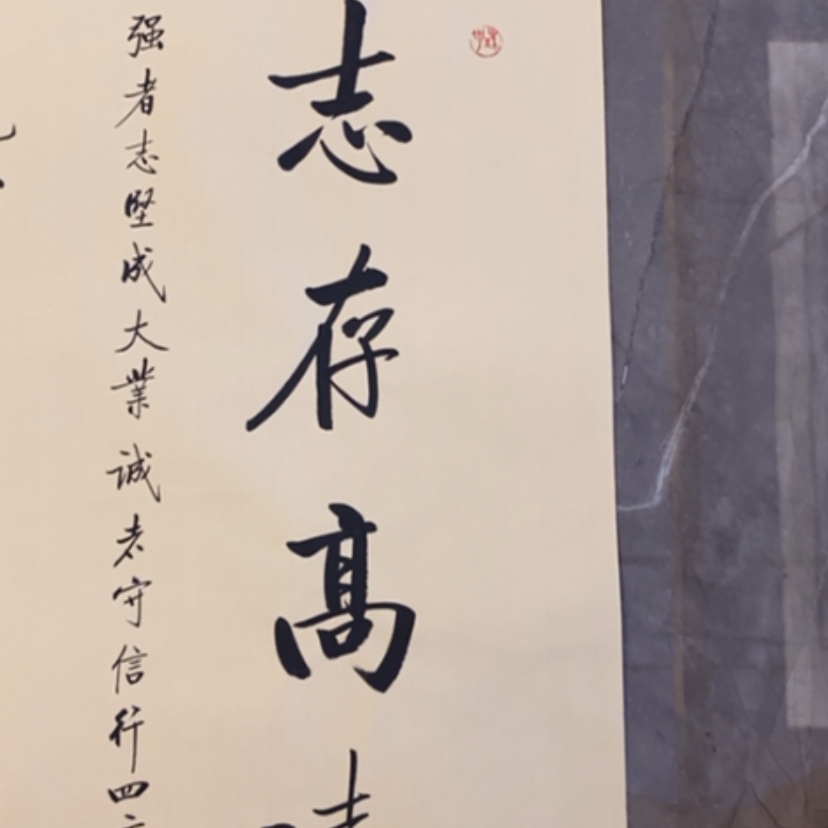 志存高
强者志坚成大業誠者守信行四